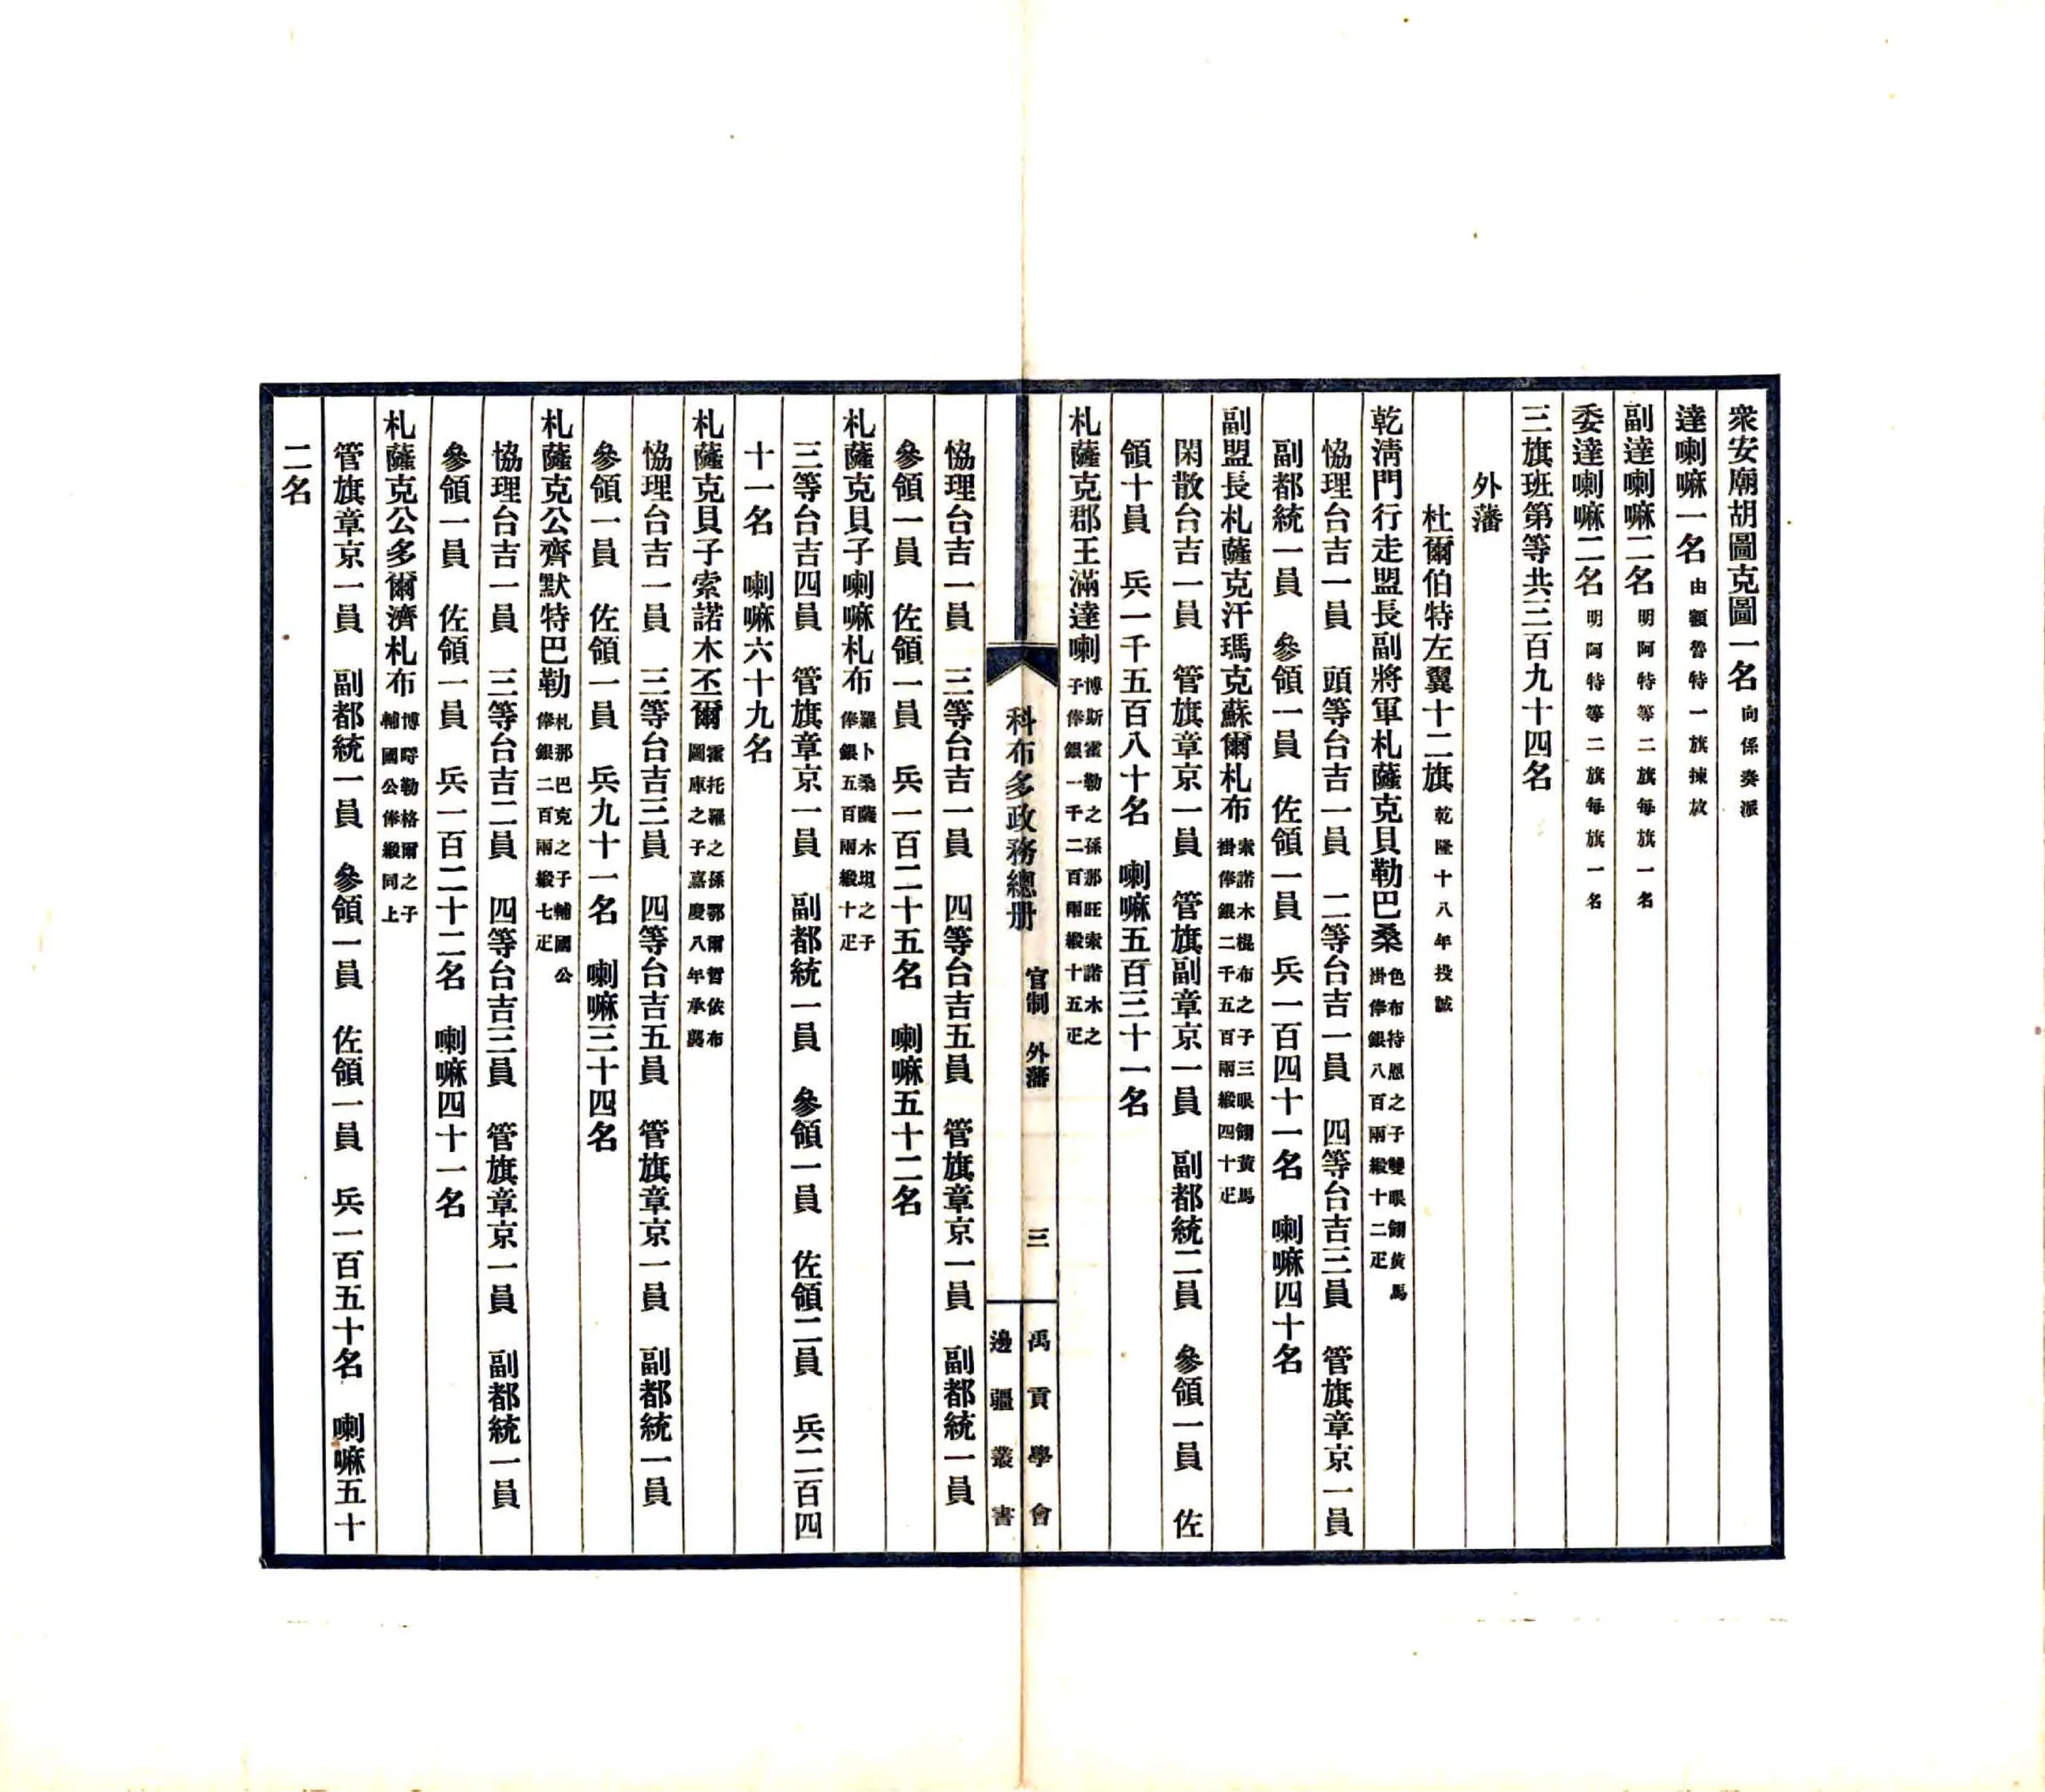 衆安廟胡圖克圖一名向係奏派
達喇嘛一名由額魯特一旗揀放
副達喇嘛二名明阿特等二旗每旗一名
委達喇嘛二名明阿特等二旗每旗一名
三旗班第等共三百九十四名
外藩
杜爾伯特左翼十二旗乾隆十八年投誠
乾清門行走盟長副將軍札薩克貝勒巴桑色布特恩之子雙眼翎黃馬褂俸銀八百兩緞十二疋
恊理台吉一員　頭等台吉一員　二等台吉一員　四等台吉三員　管旗章京一員
副都統一員　參領一員　佐領一員　兵一百四十一名　喇嘛四十名
副盟長札薩克汗瑪克蘇爾札布索諾木棍布之子三眼翎黃馬褂俸銀二千五百兩緞四十疋
閑散台吉一員　管旗章京一員　管旗副章京一員　副都統二員　參領一員　佐
領十員　兵一千五百八十名　喇嘛五百三十一名
札薩克郡王滿達喇博斯霍勒之孫那旺索諾木之子俸銀一千二百兩緞十五疋
科布多政務總册　官制　外藩　三　禹貢學會
邊疆叢書
恊理台吉一員　三等台吉一員　四等台吉五員　管旗章京一員　副都統一員
參領一員　佐領一員　兵一百二十五名　喇嘛五十二名
札薩克貝子喇嘛札布羅卜桑薩木坦之子俸銀五百兩緞十疋
三等台吉四員　管旗章京一員　副都統一員　參領一員　佐領二員　兵二百四
十一名　喇嘛六十九名
札薩克貝子索諾木丕爾霍托羅之孫鄂爾哲依布圖庫之子嘉慶八年承襲
恊理台吉一員　三等台吉三員　四等台吉五員　管旗章京一員　副都統一員
參領一員　佐領一員　兵九十一名　喇嘛三十四名
札薩克公齊默特巴勒札那巴克之子輔國公俸銀二百兩緞七疋
協理台吉一員　三等台吉二員　四等台吉三員　管旗章京一員　副都統一員
參領一員　佐領一員　兵一百二十二名　喇嘛四十一名
札薩克公多爾濟札布博㖸勒格爾之子輔國公俸緞同上
管旗章京一員　副都統一員　參領一員　佐領一員　兵一百五十名　喇嘛五十
二名